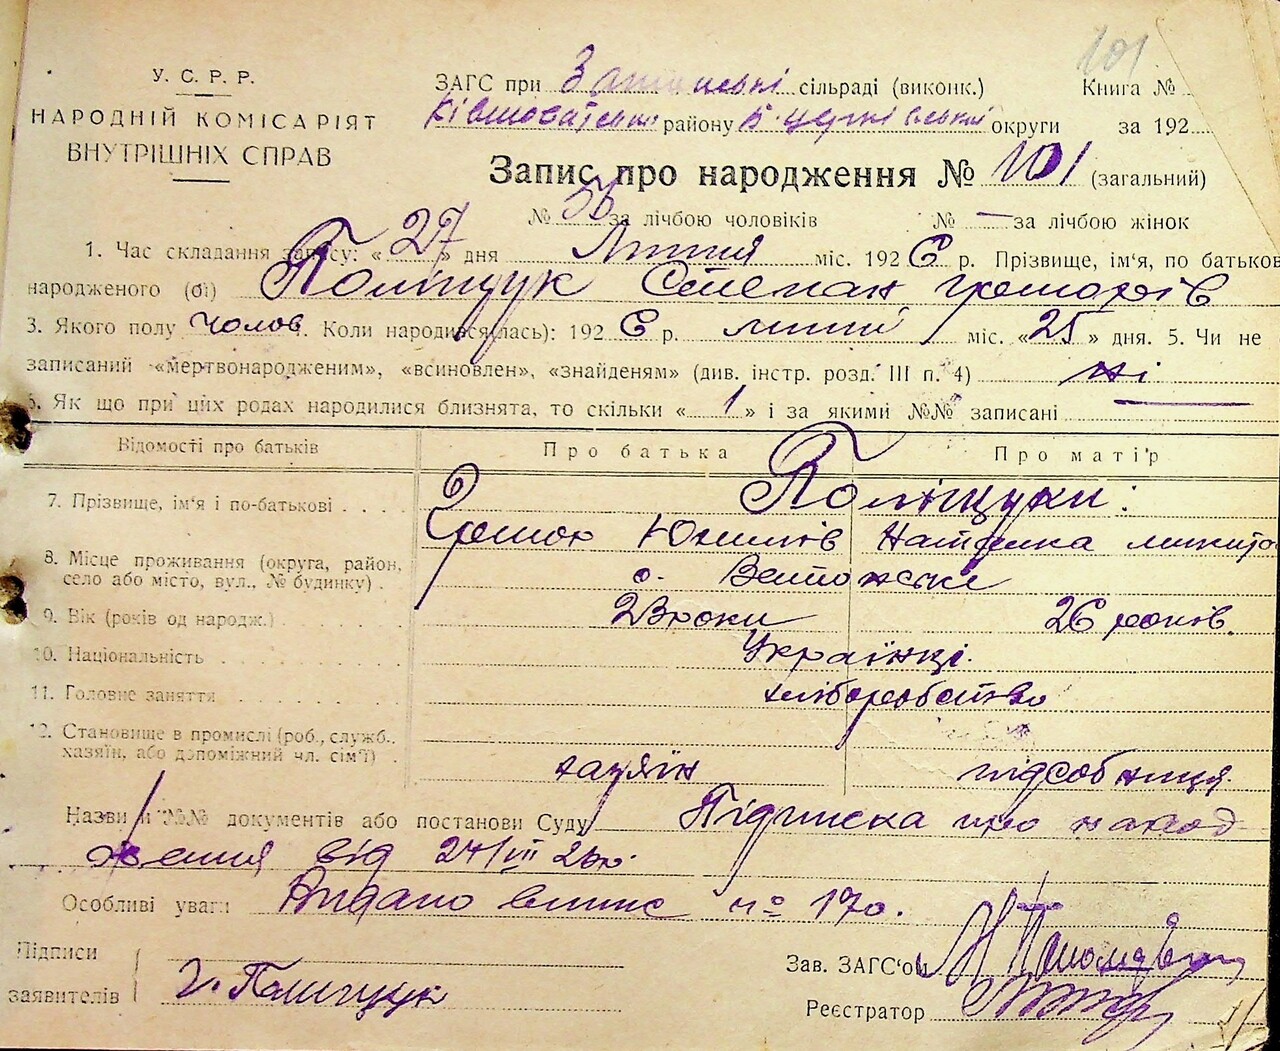 101
У. С. Р. Р.
НАРОДНІЙ КОМІСАРІЯТ
ВНУТРІШНІХ СПРАВ
ЗАГС при сільраді (виконк.) Книга №
району Б-церківської округи за 192
Запис про народження № 101 (загальний)
№ 56 за лічбою чоловіків № — за лічбою жінок
1. Час складання запису: «27» дня Липня міс. 1926 р. Прізвище, ім'я, по батьков
народженого (ої) Поліщук Степан Григорів
3. Якого полу чолов. 4. Коли народився(лась): 1926 р. липня міс. «25» дня. 5. Чи не
записаний «мертвонародженим», «всиновлен», «знайденям» (див. інстр. розд. III п. 4) ні
6. Як що при цих родах народилися близнята, то скільки «1» і за якими №№ записані
Відомості про батьків Про батька Про матір
7. Прізвище, ім'я і по-батькові Поліщуки:
Юхимів Наталка
8. Місце проживання (округа, район,
село або місто, вул., № будинку) с.
9. Вік (років од народж.) 23 роки 26 років.
10. Національність Українці.
11. Головне заняття хліборобство
12. Становище в промислі (роб., служб.,
хазяїн, або допоміжний чл. сім'ї) хазяїн підсобниця.
Назви й №№ документів або постанови Суду Підписка про народ
ження від 24/VII 26р.
Особливі уваги Видано випис № 170.
Підписи
заявителів Г. Поліщук
Зав. ЗАГС'ом
Реєстратор